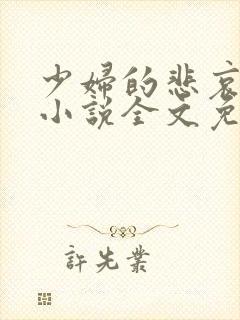 少婦的悲哀
小説全文免
許先業